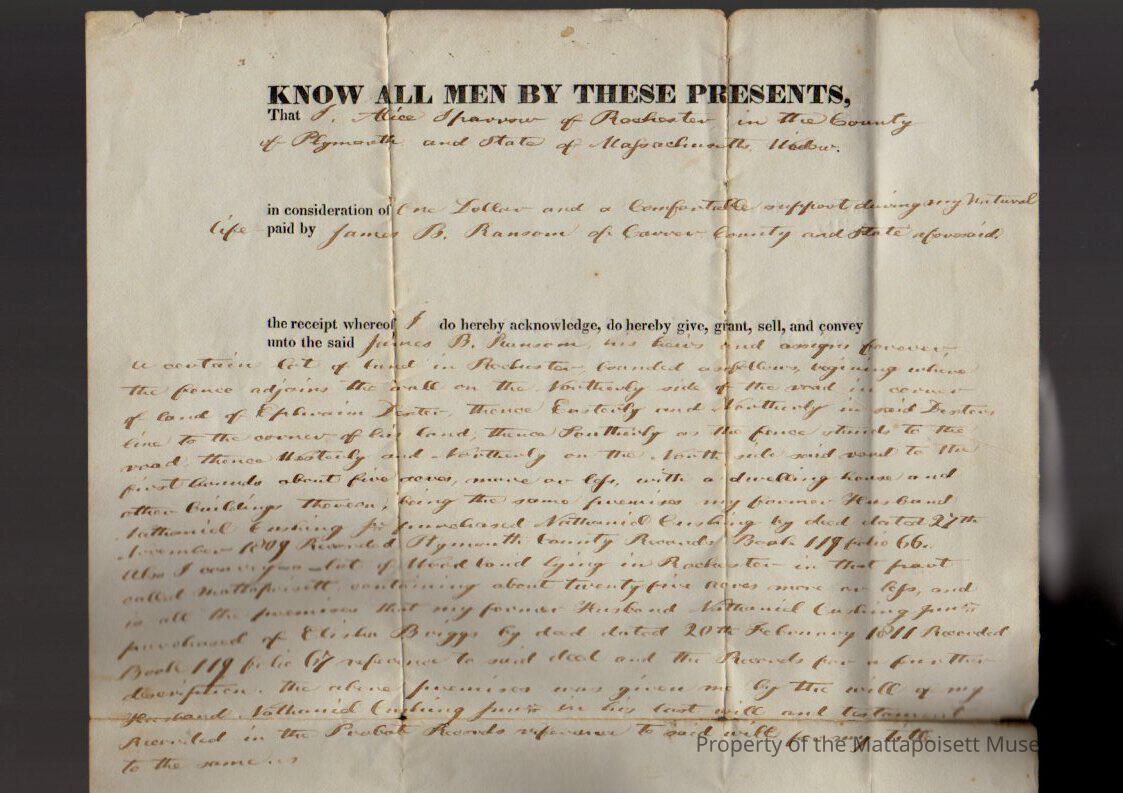 KNOW ALL MEN BY THESE PRESENTS,
That I, Alice Sparrow of Rochester in the County
of Plymouth and State of Massachusetts Widow.
in consideration of One Dollar and a Comfortable support during my Natural
life paid by James B. Ransom of Carver County and State aforesaid,
the receipt whereof I do hereby acknowledge, do hereby give, grant, sell, and convey
unto the said James B. Ransom, his heirs and assigns forever,
a certain lot of land in Rochester bounded as follows, begining where
the fence adjoins the wall on the Northerly side of the road in corner
of land of Ephraim Dexter, thence Easterly and Northerly in said Dexters
line to the corner of his land, thence Southerly as the fence stands to the
road, thence Westerly and Northerly on the North side said road to the
first bounds about five acres, more or less, with a dwelling house and
other buildings thereon, being the same premises my former Husband
Nathaniel Cushing Jr purchased Nathaniel Cushing by deed dated 27th
November 1809 Recorded Plymouth County Records Book 119 folio 66.
Also I convey a lot of Wood land lying in Rochester in that part
called Mattapoisett containing about twenty five acres more or less, and
is all the premises that my former Husband Nathaniel Cushing Junr
purchased of Elisha Briggs by deed dated 20th February 1811 Recorded
Book 119 folio 67 reference to said deed and the Records for a further
description. the above premises was given me by the will of my
Husband Nathaniel Cushing Junr in his last will and testament
Recorded in the Probate Records reference to said will for my title
to the same.
Property of the Mattapoisett Muse